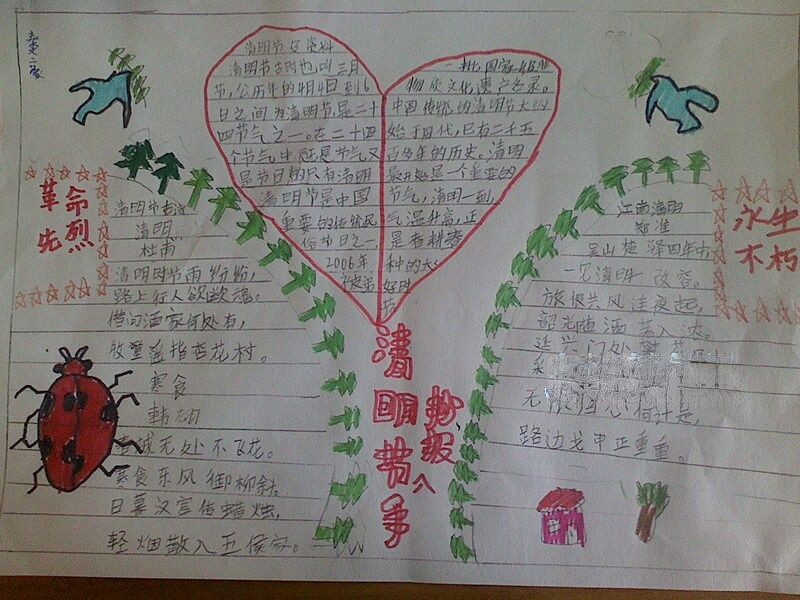 清明节文资料
清明节古时也叫三月
节,公历年的4月4日到6
日之间为清明节,是二十
四节气之一。在二十四
个节气中,既是节气又
是节日的只有清明
清明节是中国
重要的传统民
俗节日之一
2006年
一批国家级非
物质文化遗产名录。
中国传统的清明节大约
始于周代,已有二千五
百多年的历史。清明
最开始是一个重要的
节气,清明一到,
气温升高,正
是春耕春
种的大
好时
节
革命
先烈
清明节古诗
清明
杜南
清明时节雨纷纷,
路上行人欲断魂。
借问酒家何处有,
牧童遥指杏花村。
寒食
韩翃
春城无处不飞花。
寒食东风御柳斜,
日暮汉宫传蜡烛,
轻烟散入五侯家。
清明节手
抄报
永生
不朽
江南清明
郑准
吴山楚驿四年中
一见清明一改容。
旅恨共风连夜起,
韶光随酒著人浓。
延兴门外攀花
路边戈中正重重。